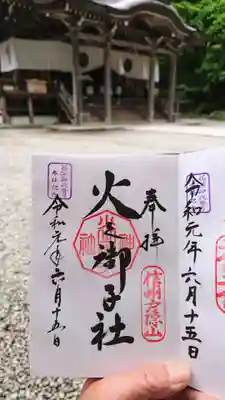 奉拝
火之御子社
信州戸隠山
令和元年六月十五日
令和元年六月十五日